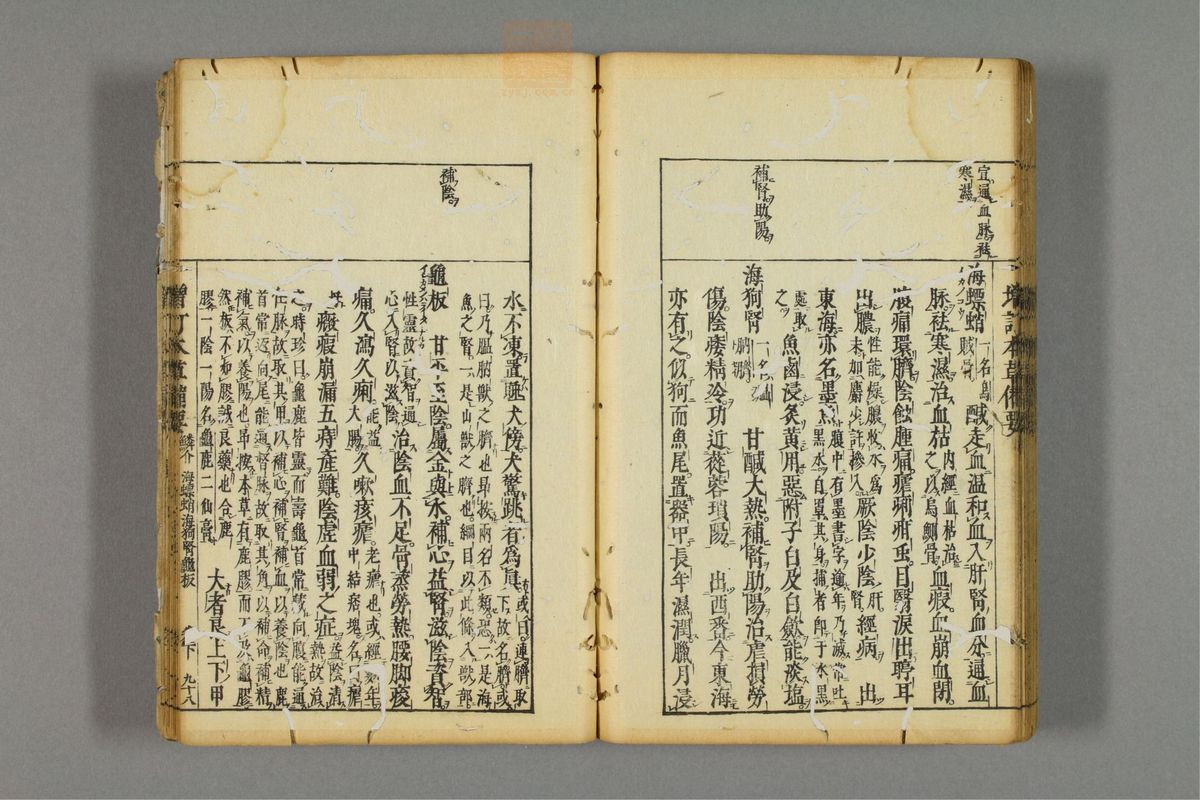 宜通血脉祛
寒濕
補腎助陽
海螵蛸
一名烏
賊骨
鹹走血温和血入肝腎血分通血
脉祛寒濕治血枯
内經血枯治
之以烏鰂骨
血瘕血崩血閉
腹痛環臍陰蝕腫痛瘧痢疳虫目腎淚出聤耳
出膿
性能燥膿收水爲
末加麝少許掺入
厥陰少陰
肝腎
經病
出
東海亦名墨魚
腹中有墨書字逾年乃滅常吐
黑水自罩其身捕者卽于水黑
處取
之
魚鹵浸炙黄用惡附子白及白斂能淡塩
海狗腎
一名
膃肭臍
甘鹹大熱補腎助陽治虚損勞
傷陰痿精冷功近蓯蓉瑣陽
出西番今東海
亦有之似狗而魚尾置器中長年濕潤臘月浸
補陰
水不凍置睡犬傍犬驚跳者為真
或曰連臍取
下故名臍或
曰乃膃肭獸之臍也昂按兩名不類恐一是海
魚之腎一是山獸之臍也綱目以此條入獸部
龜板
甘平至陰屬金與水補心益腎滋陰資智
性靈故資智通
心入腎以滋陰
治陰血不足骨蒸勞熱腰脚痠
痛久瀉久痢
能益
大腸
久嗽痎瘧
老瘧也或經數年
中結痞塊名瘧
母
癥瘕崩漏五痔産難陰虚血弱之症
益陰清
熱故治
之時珍曰龜鹿皆靈而壽龜首常藏向腹能通
任脉故取其甲以補心補腎補血以養陰也鹿
首常返向尾能通督脉故取其角以補命補精
補氣以養陽也昂按本草有鹿膠而不及龜膠
然板不如膠誠良藥也合鹿
膠一陰一陽名龜鹿二仙膏
大者良上下甲
鱗介
海螵蛸海狗腎龜板
下
九十八